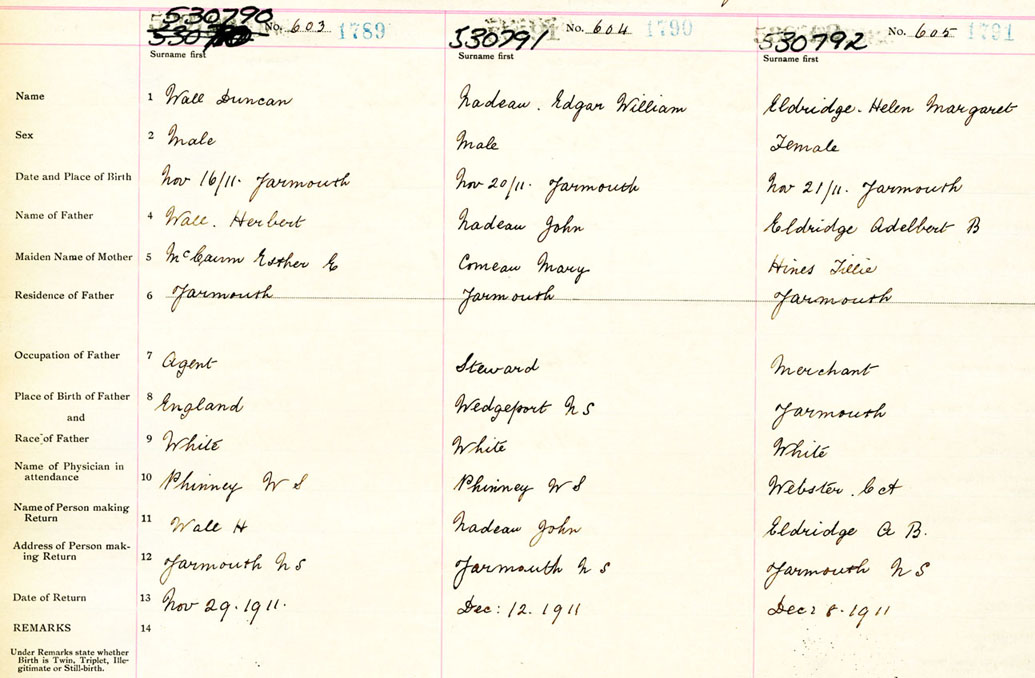 530790
No. 603 1789 530791 No. 604 1790 530792 No. 605 1791
Surname first Surname first Surname first
Name 1 Wall Duncan Nadeau. Edgar William Eldridge. Helen Margaret
Sex 2 Male Male Female
Date and Place of Birth 3 Nov 16/11. Yarmouth Nov 20/11. Yarmouth Nov 21/11. Yarmouth
Name of Father 4 Wall. Herbert Nadeau John Eldridge Adelbert B
Maiden Name of Mother 5 Esther E Comeau Mary Hines Tillie
Residence of Father 6 Yarmouth Yarmouth Yarmouth
Occupation of Father 7 Agent Steward Merchant
Place of Birth of Father 8 England Wedgeport N S Yarmouth
and
Race of Father 9 White White White
Name of Physician in
attendance 10 Phinney W S Phinney W S Webster. C A
Name of Person making
Return 11 Wall H Nadeau John Eldridge A B.
Address of Person mak-
ing Return 12 Yarmouth N S Yarmouth N S Yarmouth N S
Date of Return 13 Nov 29. 1911. Dec: 12. 1911 Dec: 8. 1911
REMARKS 14
Under Remarks state whether
Birth is Twin, Triplet, Ille-
gitimate or Still-birth.